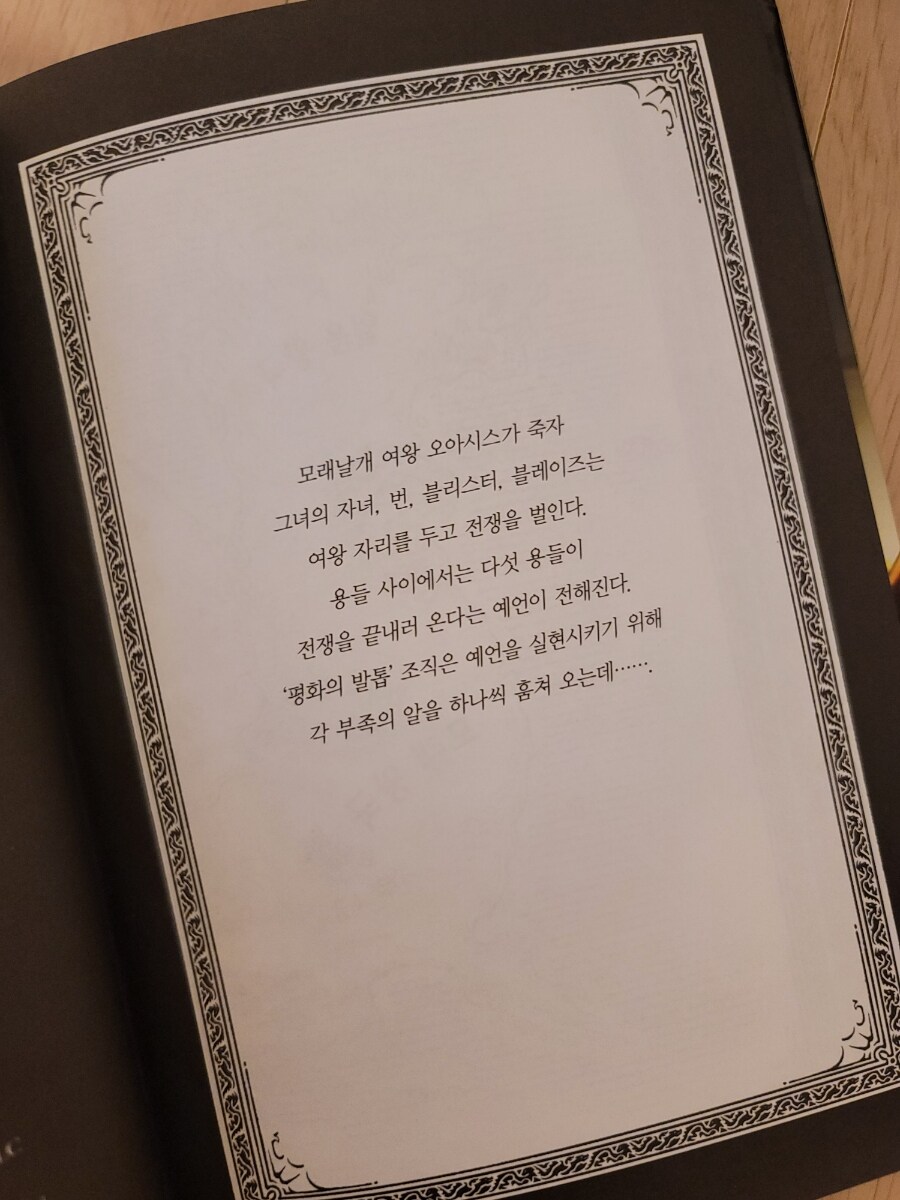 모래날개 여왕 오아시스가 죽자
그녀의 자녀, 번, 블리스터, 블레이즈는
여왕 자리를 두고 전쟁을 벌인다.
용들 사이에서는 다섯 용들이
전쟁을 끝내러 온다는 예언이 전해진다.
‘평화의 발톱’ 조직은 예언을 실현시키기 위해
각 부족의 알을 하나씩 훔쳐 오는데…….